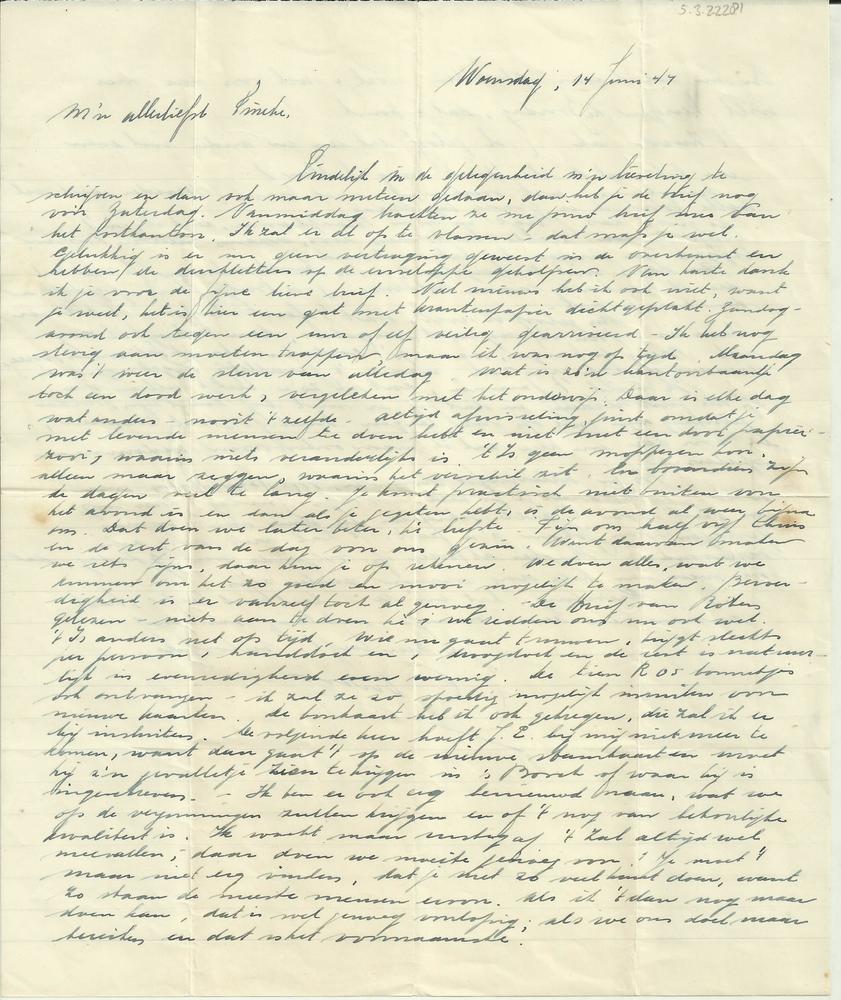 5.3.22281
Woensdag, 14 Juni 47
M'n allerliefst Pineke,
Eindelijk in de gelegenheid m'n lieveling te
schrijven en dan ook maar meteen gedaan, dan heb je de brief nog
vóór Zaterdag. Vanmiddag haalden ze me jouw brief mee van
het postkantoor. Ik zal er al op te vlassen - dat snap je wel.
Gelukkig is er nu geen vertraging geweest in de overkomst en
hebben de drukletters op de enveloppe geholpen. Van harte dank
ik je voor de fijne lieve brief. Veel nieuws heb ik ook niet, want
je weet, het is hier een gat met krantenpapier dichtgeplakt. Zondag-
avond ook tegen een uur of elf veilig gearriveerd - Ik heb nog
stevig aan moeten trappen, maar ik was nog op tijd. Maandag
was 't weer de sleur van alledag. Wat is zo'n kantoorbaantje
toch een dood werk, vergeleken met het onderwijs. Daar is elke dag
wat anders - nooit 't zelfde - altijd afwisseling, juist omdat je
met levende mensen te doen hebt en niet met een dooie papier-
zooi, waarin niets veranderlijks is. 't Is geen mopperen hoor.
alleen maar zeggen, waarin het verschil zit. En bovendien zijn
de dagen veel te lang. Je komt practisch niet buiten voor
het avond is en dan als je gegeten hebt, is de avond al weer bijna
om. Dat doen we later beter, hè liefste. Fijn om half vijf thuis
en de rest van de dag voor ons gezin. Want daarvan maken
we iets fijns, daar kun je op rekenen. We doen alles, wat we
kunnen om het zo goed en mooi mogelijk te maken.
digheid is er vanzelf toch al genoeg. - De brief van
gelezen - niets aan te doen hè, we redden ons nu ook wel.
't Is anders net op tijd. Wie nu gaat trouwen, krijgt slechts
per persoon 1 handdoek en 1 droogdoek en de rest is natuur-
lijk in evenredigheid even weinig. De tien R 05 bonnetjes
ook ontvangen - ik zal ze zo spoedig mogelijk inruilen voor
nieuwe kaarten. De bonkaart heb ik ook gekregen, die zal ik er
bij insluiten. De volgende keer hoeft J.E. bij mij niet meer te
komen, want dan gaat 't op de nieuwe stamkaart en moet
hij z'n gevalletje zien te krijgen in 's Borst of waar hij is
ingeschreven. - Ik ben er ook erg benieuwd naar, wat we
op de vergunningen zullen krijgen en of 't nog van behoorlijke
kwaliteit is. Ik wacht maar rustig af. 't Zal altijd wel
meevallen, daar doen we moeite genoeg voor! Je moet 't
maar niet erg vinden, dat je niet zo veel kunt doen, want
zo staan de meeste mensen ervoor. Als ik 't dan nog maar
doen kan, dat is wel genoeg voorlopig; als we ons doel maar
bereiken en dat is het voornaamste.